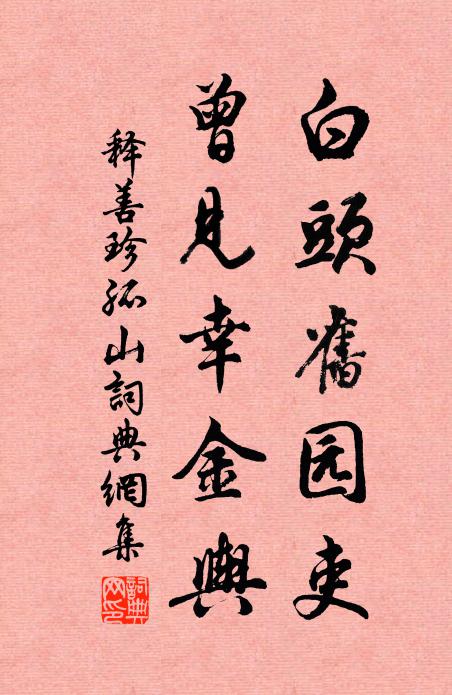 白頭舊园吏
曾見幸金輿
释善珍孤山詞典網集
詞典
网印